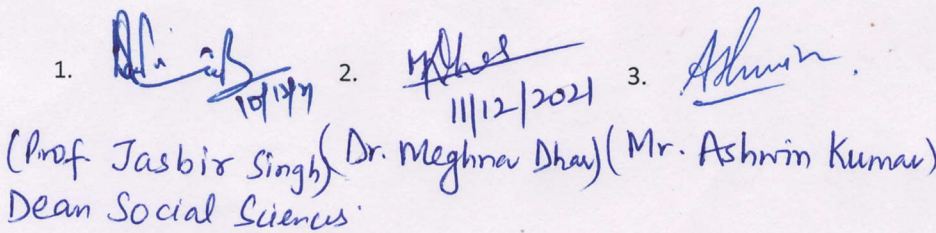 1. 2. 3. Ashwin.
10/12/21 11/12/2021
(Prof. Jasbir Singh) (Dr. Meghna Dhar) (Mr. Ashwin Kumar)
Dean Social Sciences